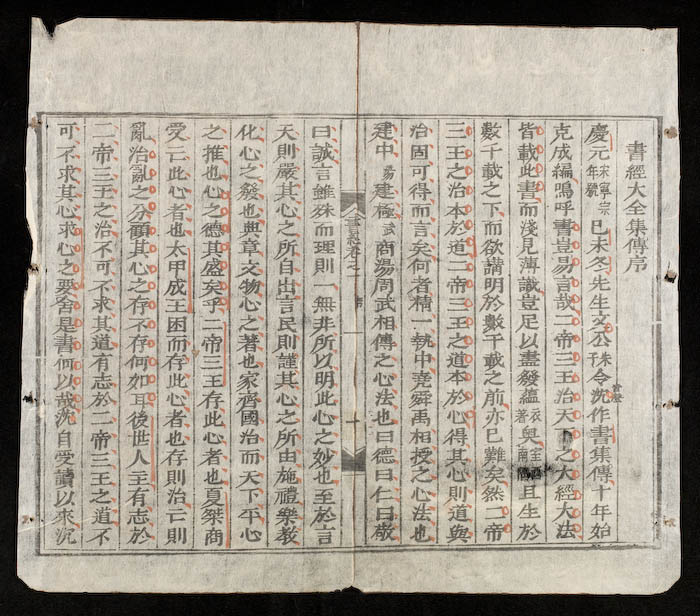 書經大全集傳序
慶元宋寧宗年號己未冬先生文公朱令沈作書集傳十年始
克成編嗚呼書豈易言哉二帝三王治天下之大經大法
皆載此書而淺見薄識豈足以盡發蘊奧且生於
數千載之下而欲講明於數千載之前亦已難矣然二帝
三王之治本於道二帝三王之道本於心得其心則道與
治固可得而言矣何者精一執中堯舜禹相授之心法也
建中湯建極武商湯周武相傳之心法也曰德曰仁曰敬
曰誠言雖殊而理則一無非所以明此心之妙也至於言
天則嚴其心之所自出言民則謹其心之所由施禮樂教
化心之發也典章文物心之著也家齊國治而天下平心
之推也心之德其盛矣乎二帝三王存此心者也夏桀商
受亡此心者也太甲成王困而存此心者也存則治亡則
亂治亂之分顧其心之存不存何如耳後世人主有志於
二帝三王之治不可不求其道有志於二帝三王之道不
可不求其心求心之要舍是書何以哉沈自受讀以來沉